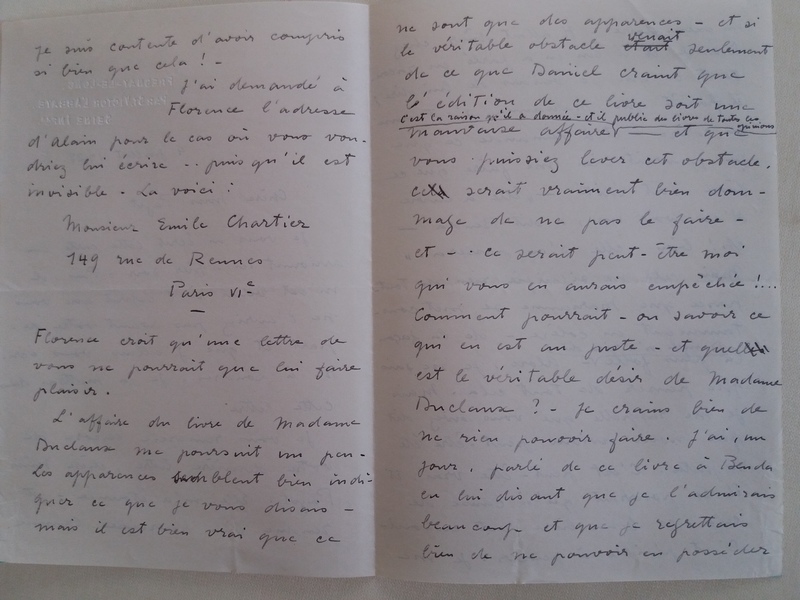 je suis contente d'avoir compris
si bien que cela ! -
J'ai demandé à
Florence l'adresse
d'Alain pour le cas où vous vou-
driez lui écrire -- puisqu'il est
invisible - La voici :
Monsieur Emile Chartier
149 rue de Rennes
Paris VIe
Florence croit qu'une lettre de
vous ne pourrait que lui faire
plaisir.
L'affaire du livre de Madame
Duclaux me poursuit un peu -
Les apparences semblent bien indi-
quer ce que je vous disais -
mais il est bien vrai que ce
ne sont que des apparences - et si
le véritable obstacle était venait seulement
de ce que Daniel craint que
l'édition de ce livre soit une
c'est la raison qu'il a donnée - et il publie des livres de toutes ces opinions
mauvaise affaire - et que
vous puissiez lever cet obstacle,
ce serait vraiment bien dom-
mage de ne pas le faire -
et - - ce serait peut-être moi
qui vous en aurais empêchée !...
Comment pourrait-on savoir ce
qui en est au juste - et quel
est le véritable désir de Madame
Duclaux ? - Je crains bien de
ne rien pouvoir faire. J'ai, un
jour, parlé de ce livre à Benda
en lui disant que je l'admirais
beaucoup et que je regrettais
bien de ne pouvoir en posséder